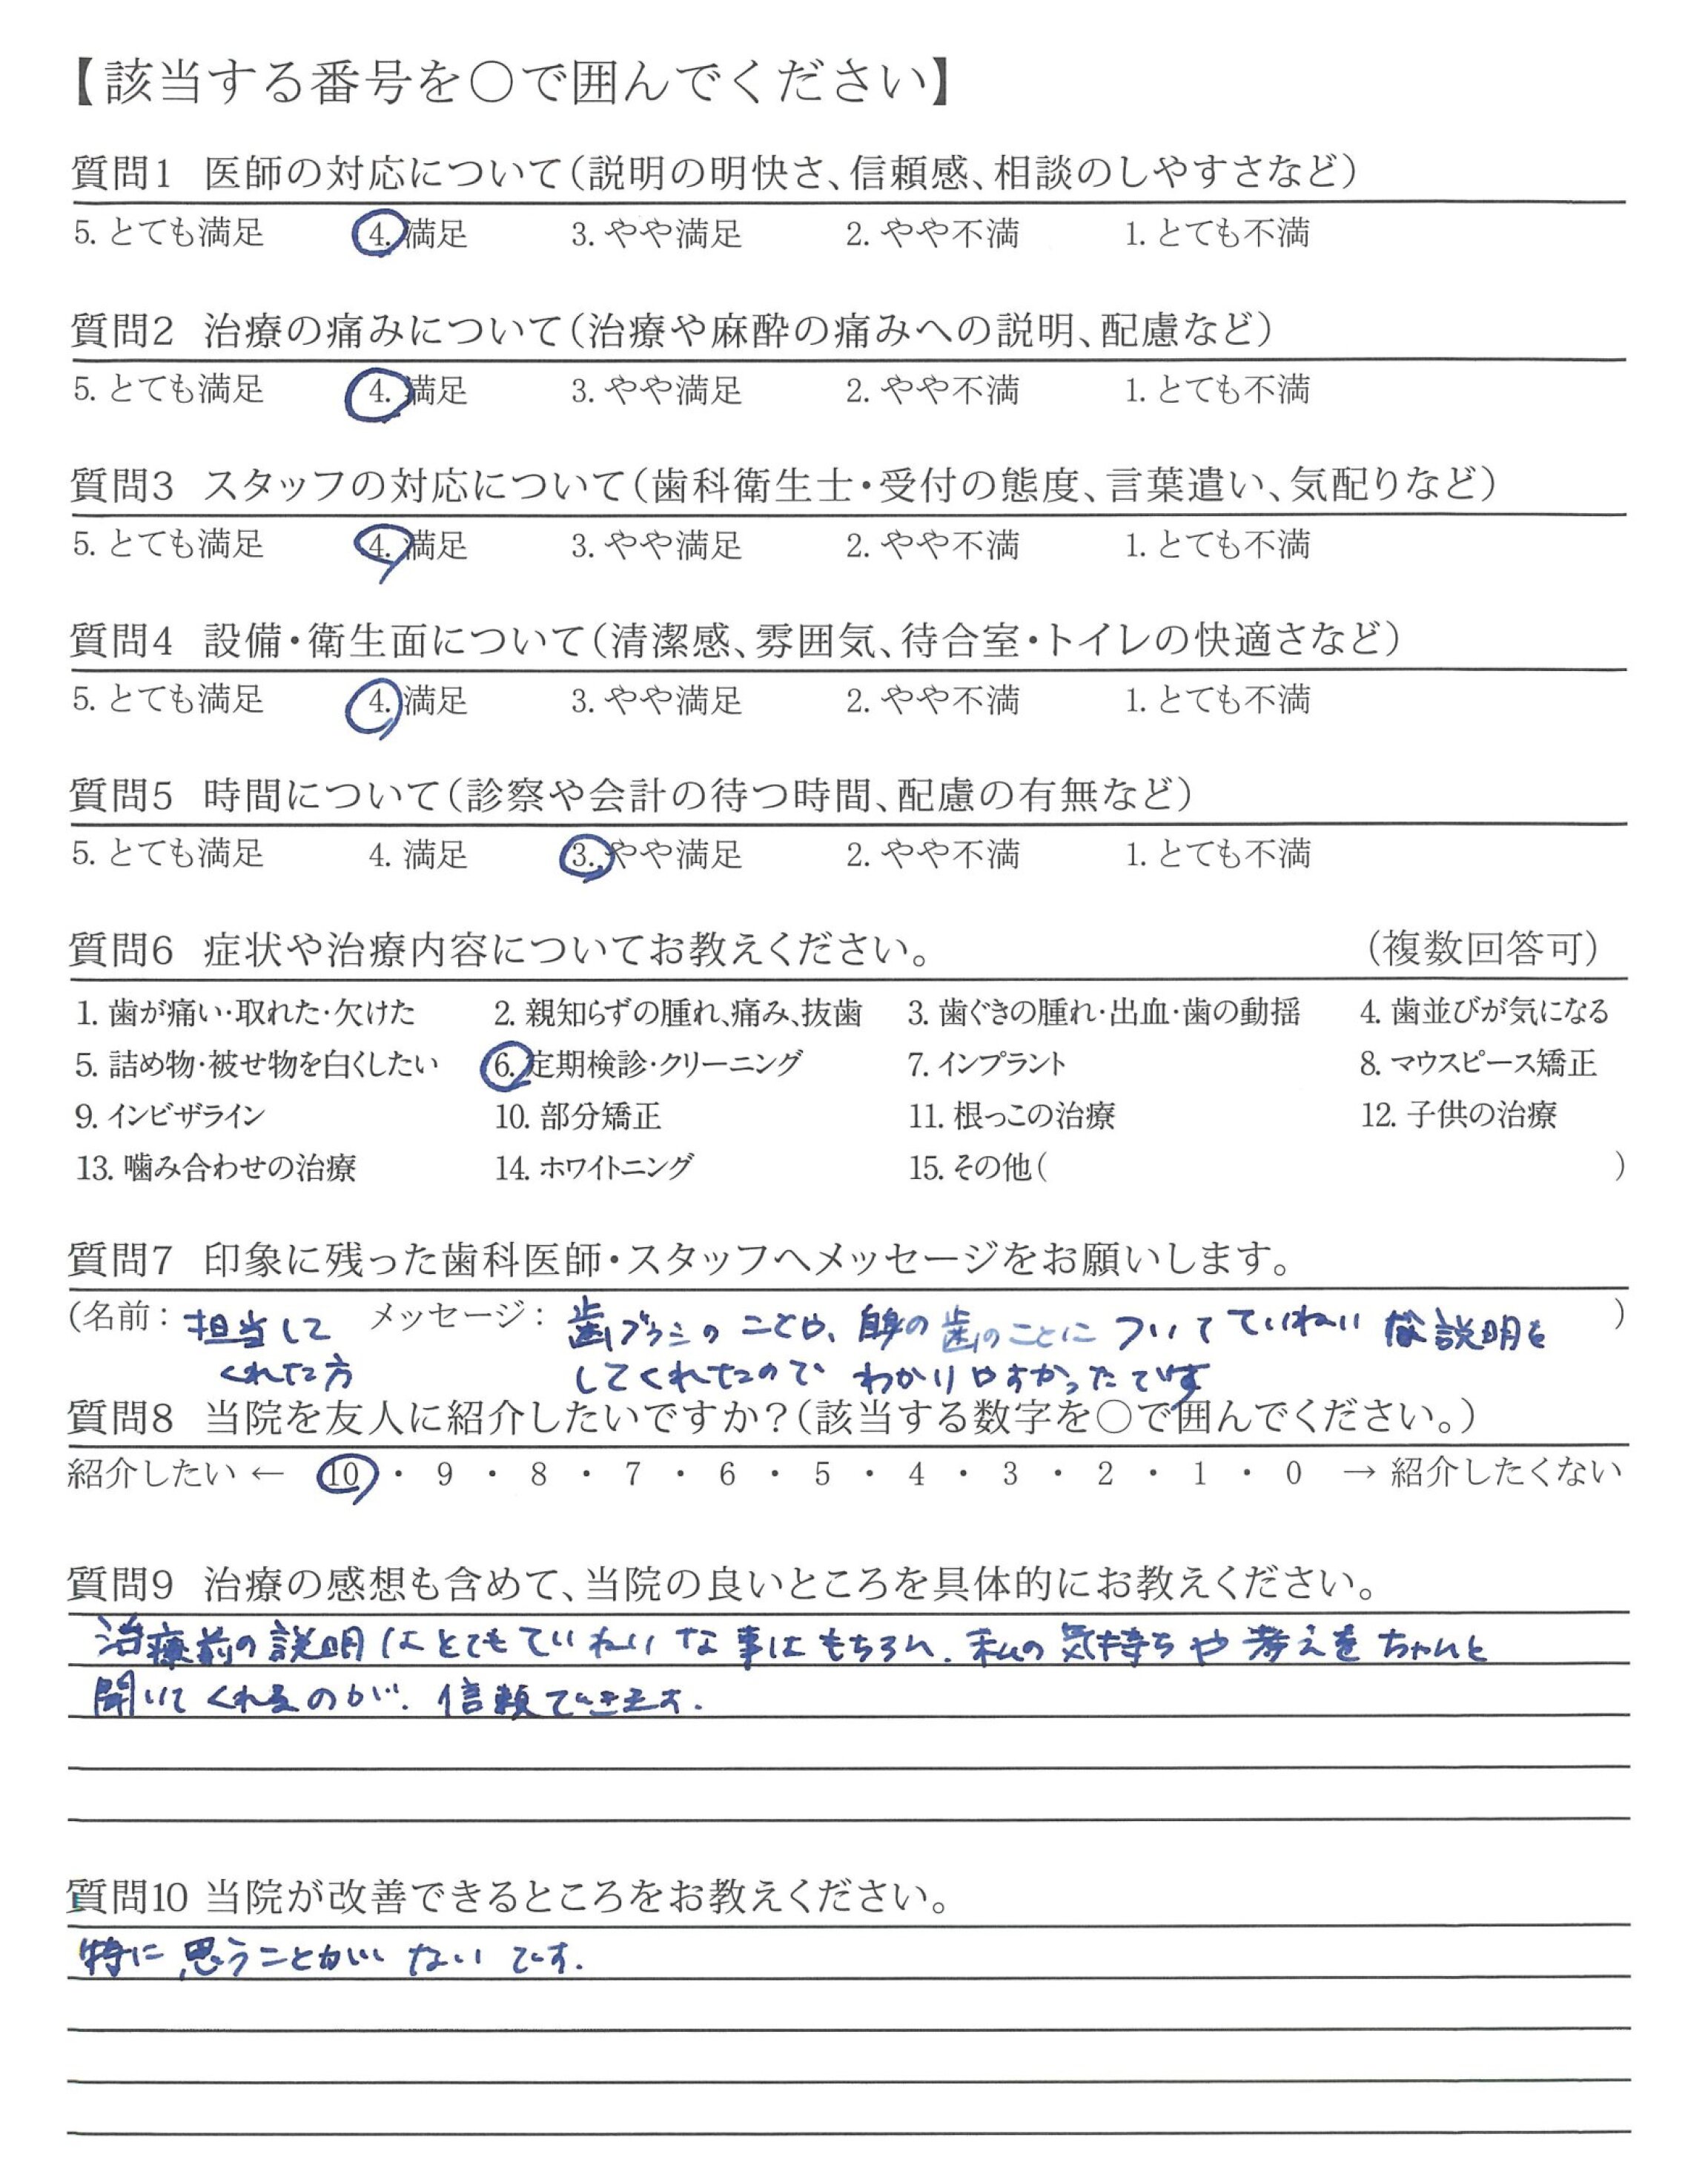 【該当する番号を○で囲んでください】
質問1 医師の対応について(説明の明快さ、信頼感、相談のしやすさなど)
5. とても満足 4. 満足 3. やや満足 2. やや不満 1. とても不満
質問2 治療の痛みについて(治療や麻酔の痛みへの説明、配慮など)
5. とても満足 4. 満足 3. やや満足 2. やや不満 1. とても不満
質問3 スタッフの対応について(歯科衛生士・受付の態度、言葉遣い、気配りなど)
5. とても満足 4. 満足 3. やや満足 2. やや不満 1. とても不満
質問4 設備・衛生面について(清潔感、雰囲気、待合室・トイレの快適さなど)
5. とても満足 4. 満足 3. やや満足 2. やや不満 1. とても不満
質問5 時間について(診察や会計の待つ時間、配慮の有無など)
5. とても満足 4. 満足 3. やや満足 2. やや不満 1. とても不満
質問6 症状や治療内容についてお教えください。 (複数回答可)
1. 歯が痛い・取れた・欠けた 2. 親知らずの腫れ、痛み、抜歯 3. 歯ぐきの腫れ・出血・歯の動揺 4. 歯並びが気になる
5. 詰め物・被せ物を白くしたい 6. 定期検診・クリーニング 7. インプラント 8. マウスピース矯正
9. インビザライン 10. 部分矯正 11. 根っこの治療 12. 子供の治療
13. 噛み合わせの治療 14. ホワイトニング 15. その他( )
質問7 印象に残った歯科医師・スタッフへメッセージをお願いします。
(名前: 担当して メッセージ: 歯ブラシのことや、自身の歯のことについてていねいな説明を )
くれた方 してくれたので わかりやすかったです
質問8 当院を友人に紹介したいですか?(該当する数字を○で囲んでください。)
紹介したい ← 10 ・ 9 ・ 8 ・ 7 ・ 6 ・ 5 ・ 4 ・ 3 ・ 2 ・ 1 ・ 0 → 紹介したくない
質問9 治療の感想も含めて、当院の良いところを具体的にお教えください。
治療前の説明はとてもていねいな事はもちろん、私の気持ちや考えをちゃんと
聞いてくれるのが、信頼できます。
質問10 当院が改善できるところをお教えください。
特に思うことがないです。